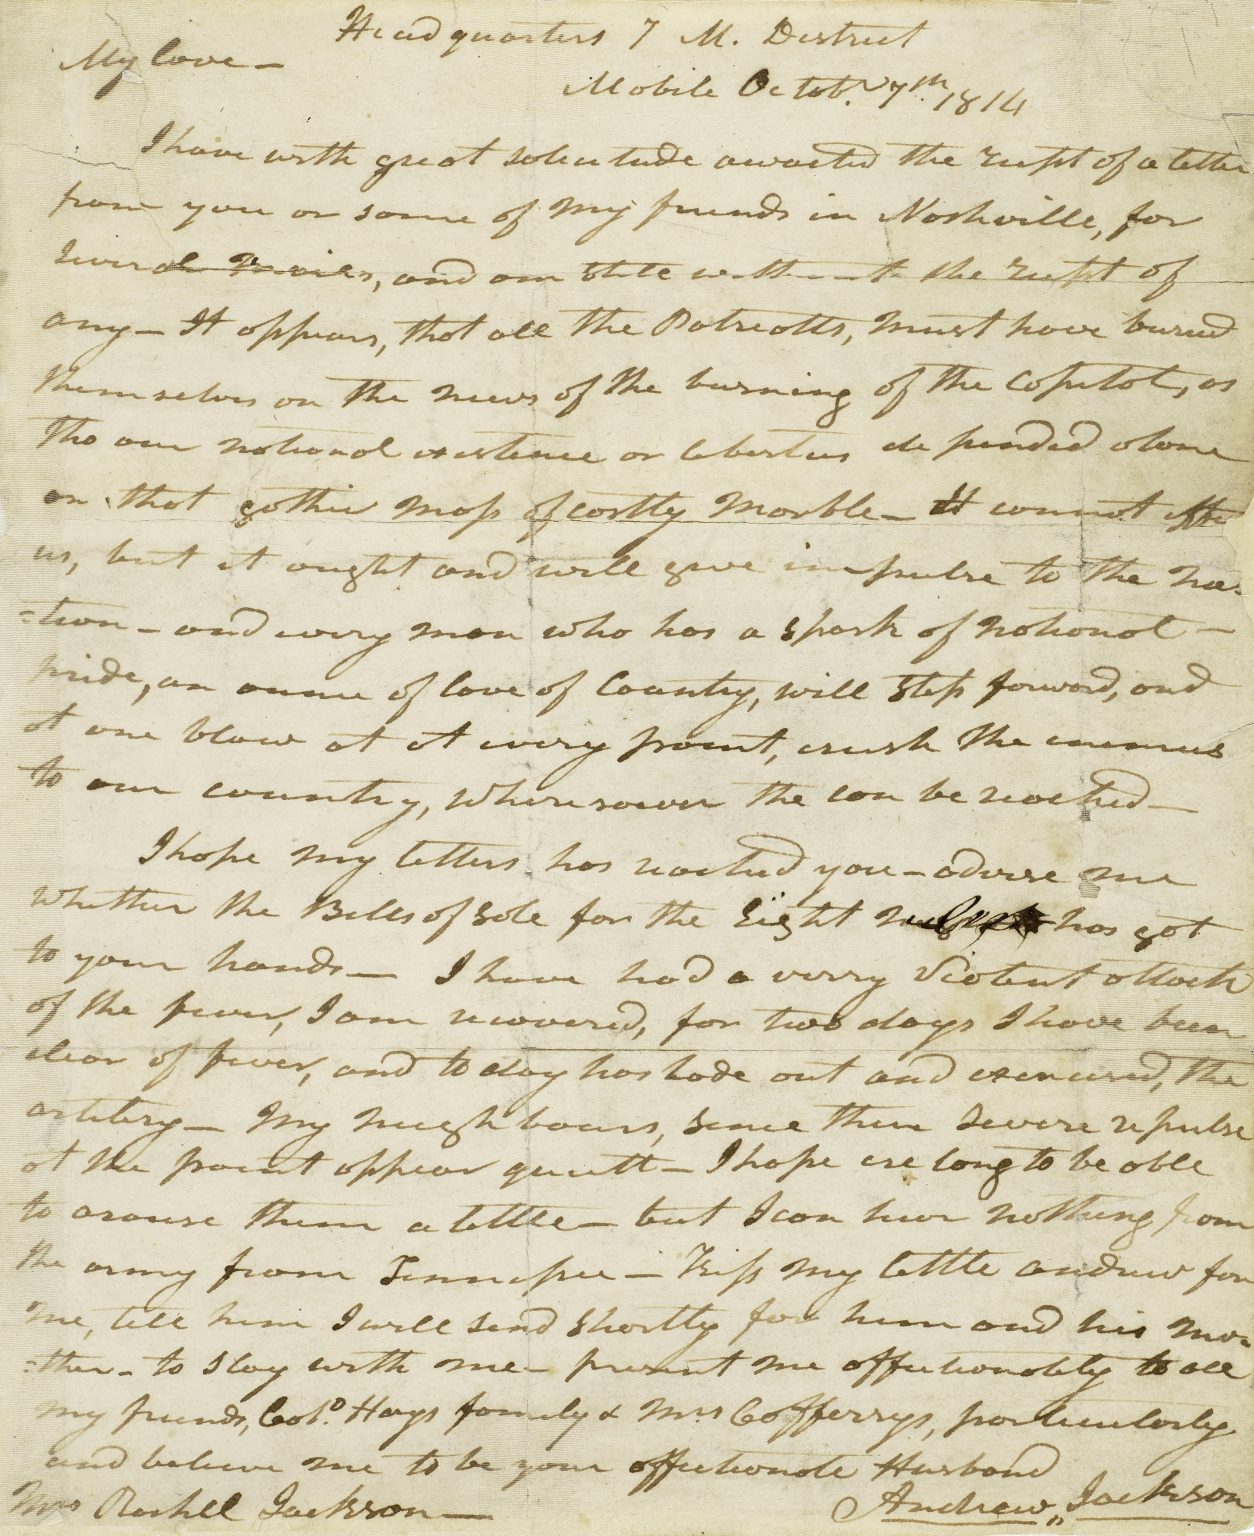 Head quarters 7 M. District
My love—
Mobile Octobr. 7th. 1814
I have with great solicitude awaited the recpt of a letter
from you or some of my friends in Nashville, for
several mails, and am still without the recpt of
any— It appears, that all the Patriotts, must have buried
themselves on the news of the burning of the Capitol, as
tho our national existence or liberties depended alone
on that gothic mass of costly marble— It cannot effect
us, but it ought and will give impulse to the na-
=tion— and every man who has a spark of national—
pride, an ounce of love of Country, will step forward, and
at one blow at at every point, crush the enemies
to our country, wheresoever the can be reached—
I hope my letters has reached you— advise me
whether the Bills of Sale for the Eight has got
to your hands— I have had a verry violent attack
of the fever, I am recovered, for two days I have been
clear of fever, and to day has rode out and exercised, the
artilery— My neighbours, since their severe repulse
at the point appear quiett— I hope ere long to be able
to arouse them a little— but I can hear nothing from
the army from Tennessee— Kiss my little andrew for
me, tell him I will send shortly for him and his mo-
=ther— to stay with me— present me affectionately to all
my friends, Colo. Hays family & Mrs Cafferrys, particularly
and believe me to be your affectionate Husband
Mrs Rachel Jackson—
Andrew Jackson